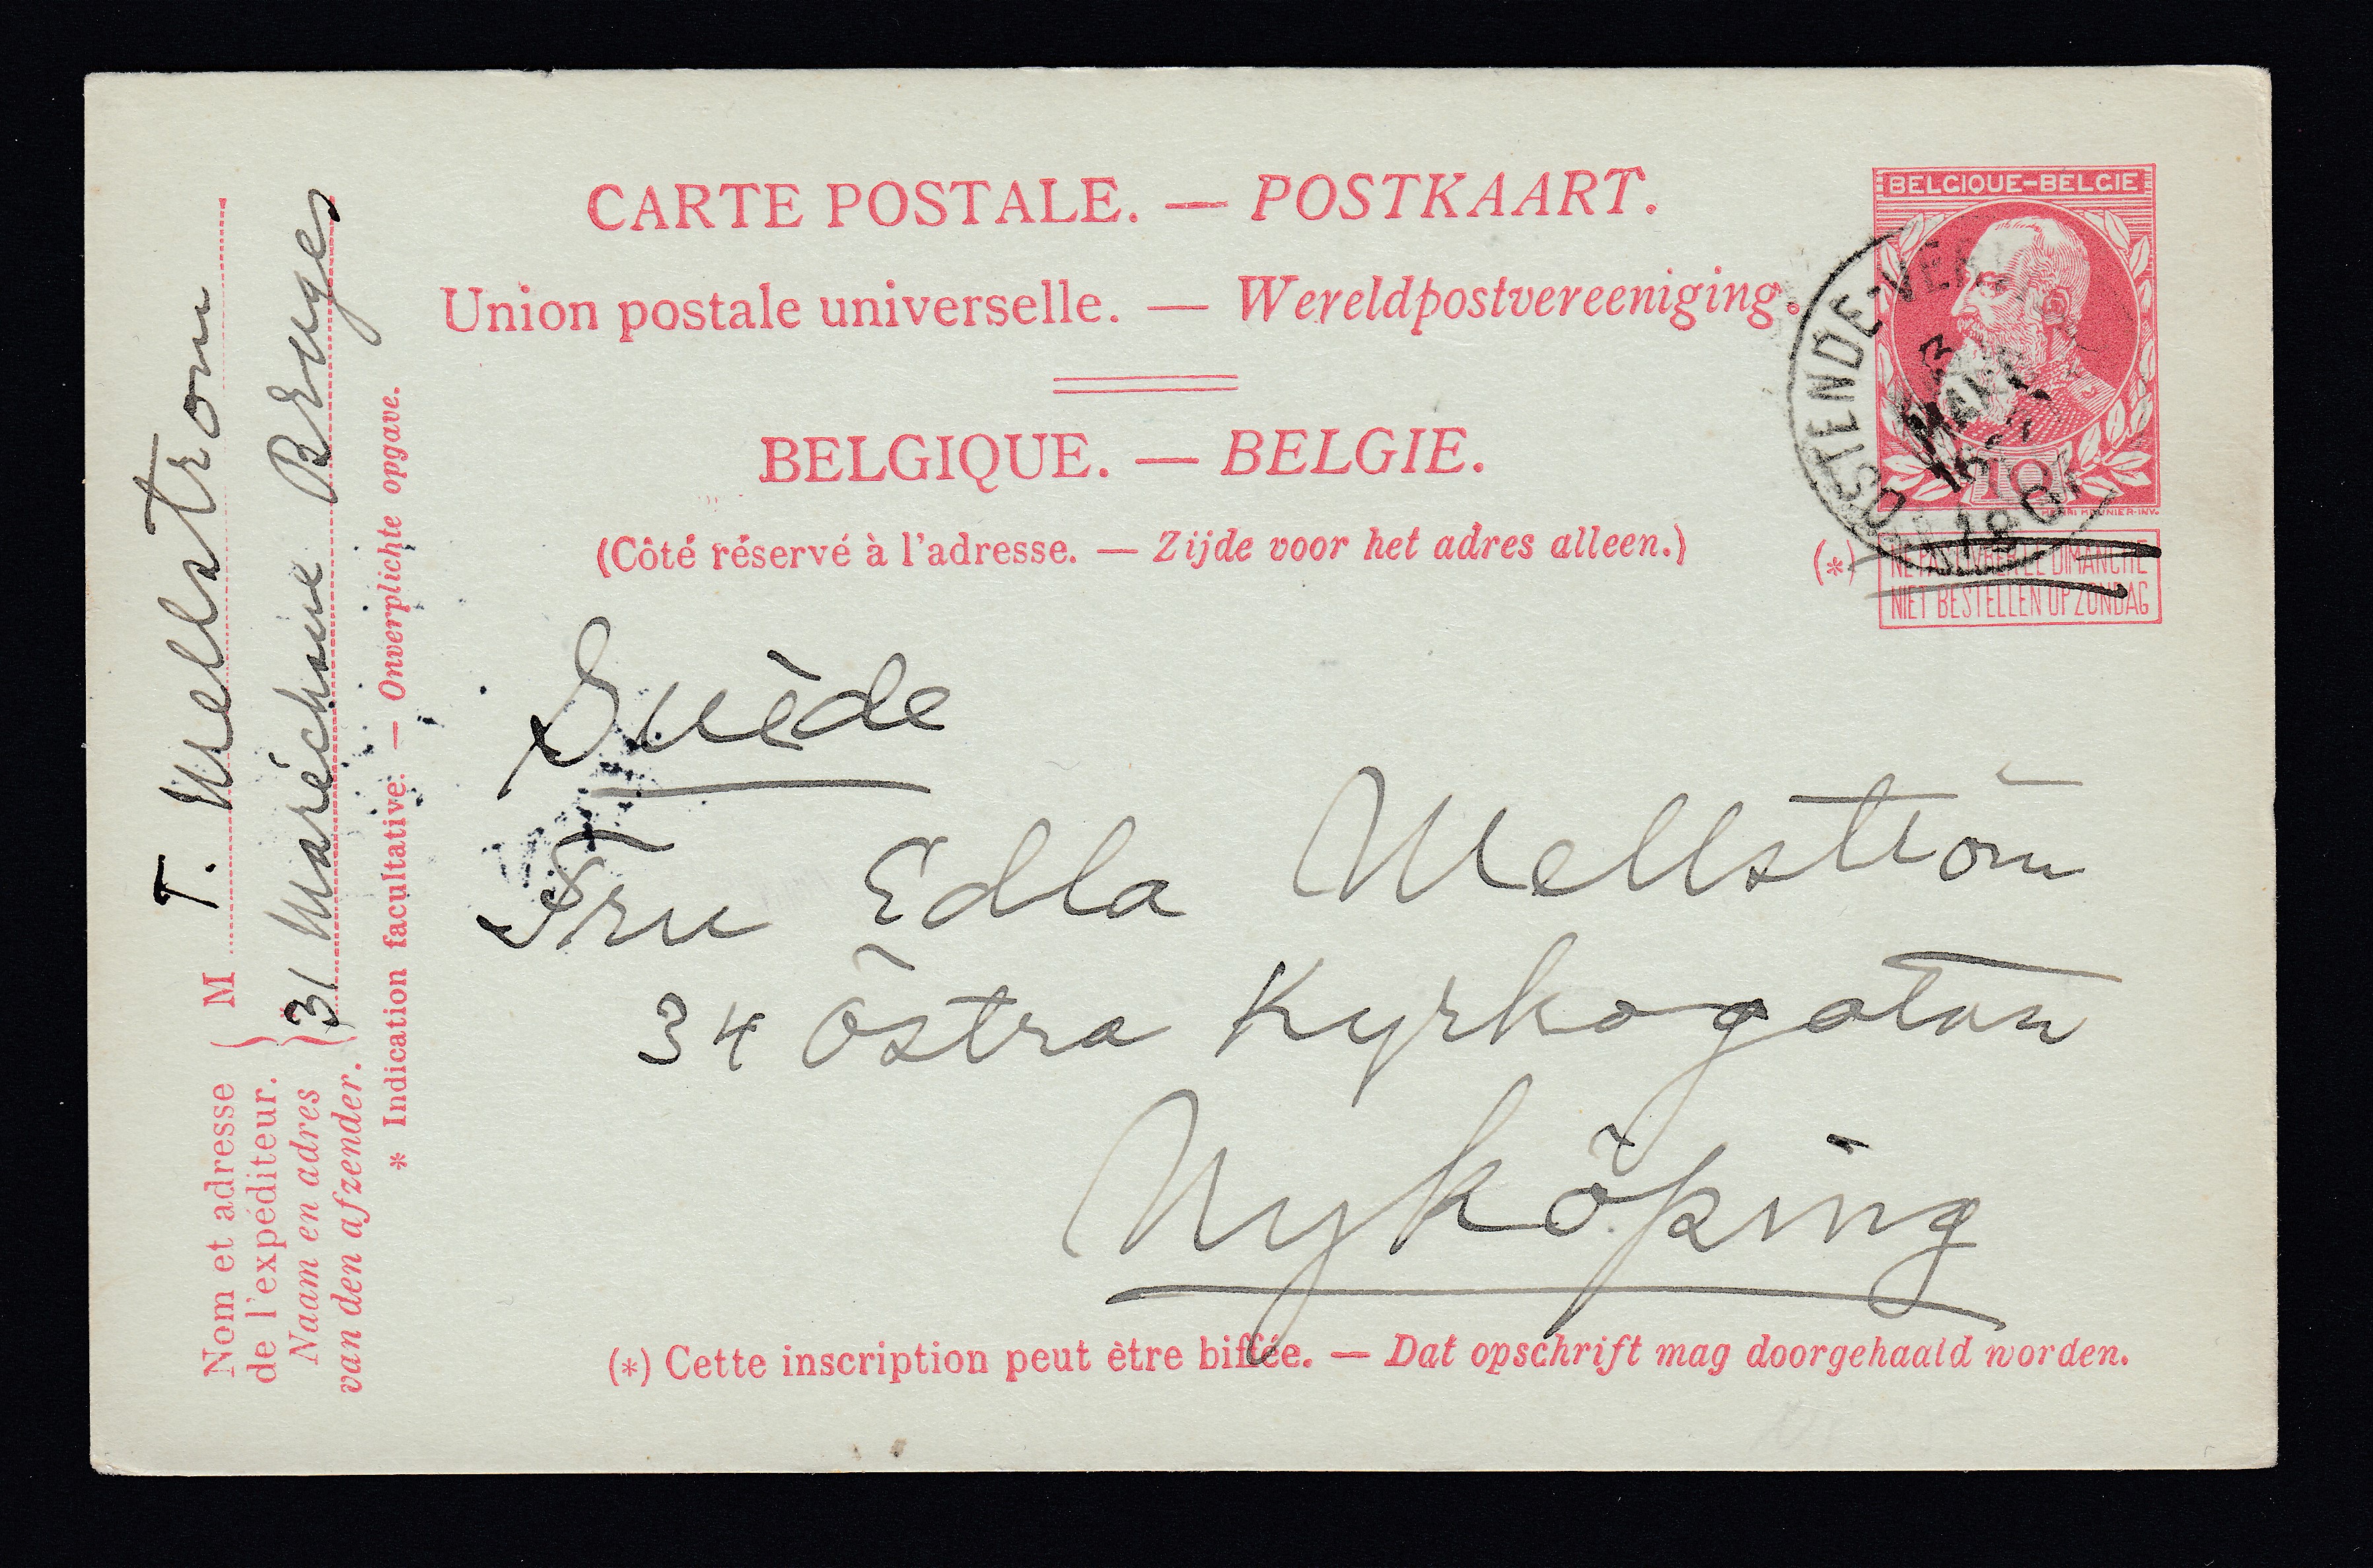 CARTE POSTALE. — POSTKAART.
Union postale universelle. — Wereldpostvereeniging.
BELGIQUE. — BELGIE.
(Côté réservé à l'adresse. — Zijde voor het adres alleen.)
BELGIQUE-BELGIE
10
HENRI MEUNIER·INV.
OOSTENDE-VER
3
MART
(*)
NE PAS LIVRER LE DIMANCHE
NIET BESTELLEN OP ZONDAG
Suède
Fru Edla Mellström
34 Östra Kyrkogatan
Nyköping
(*) Cette inscription peut être biffée. — Dat opschrift mag doorgehaald worden.
Nom et adresse
de l'expéditeur.
Naam en adres
van den afzender.
M T. Mellstrom
31 Maréchaue Bruges
* Indication facultative. — Onverplichte opgave.